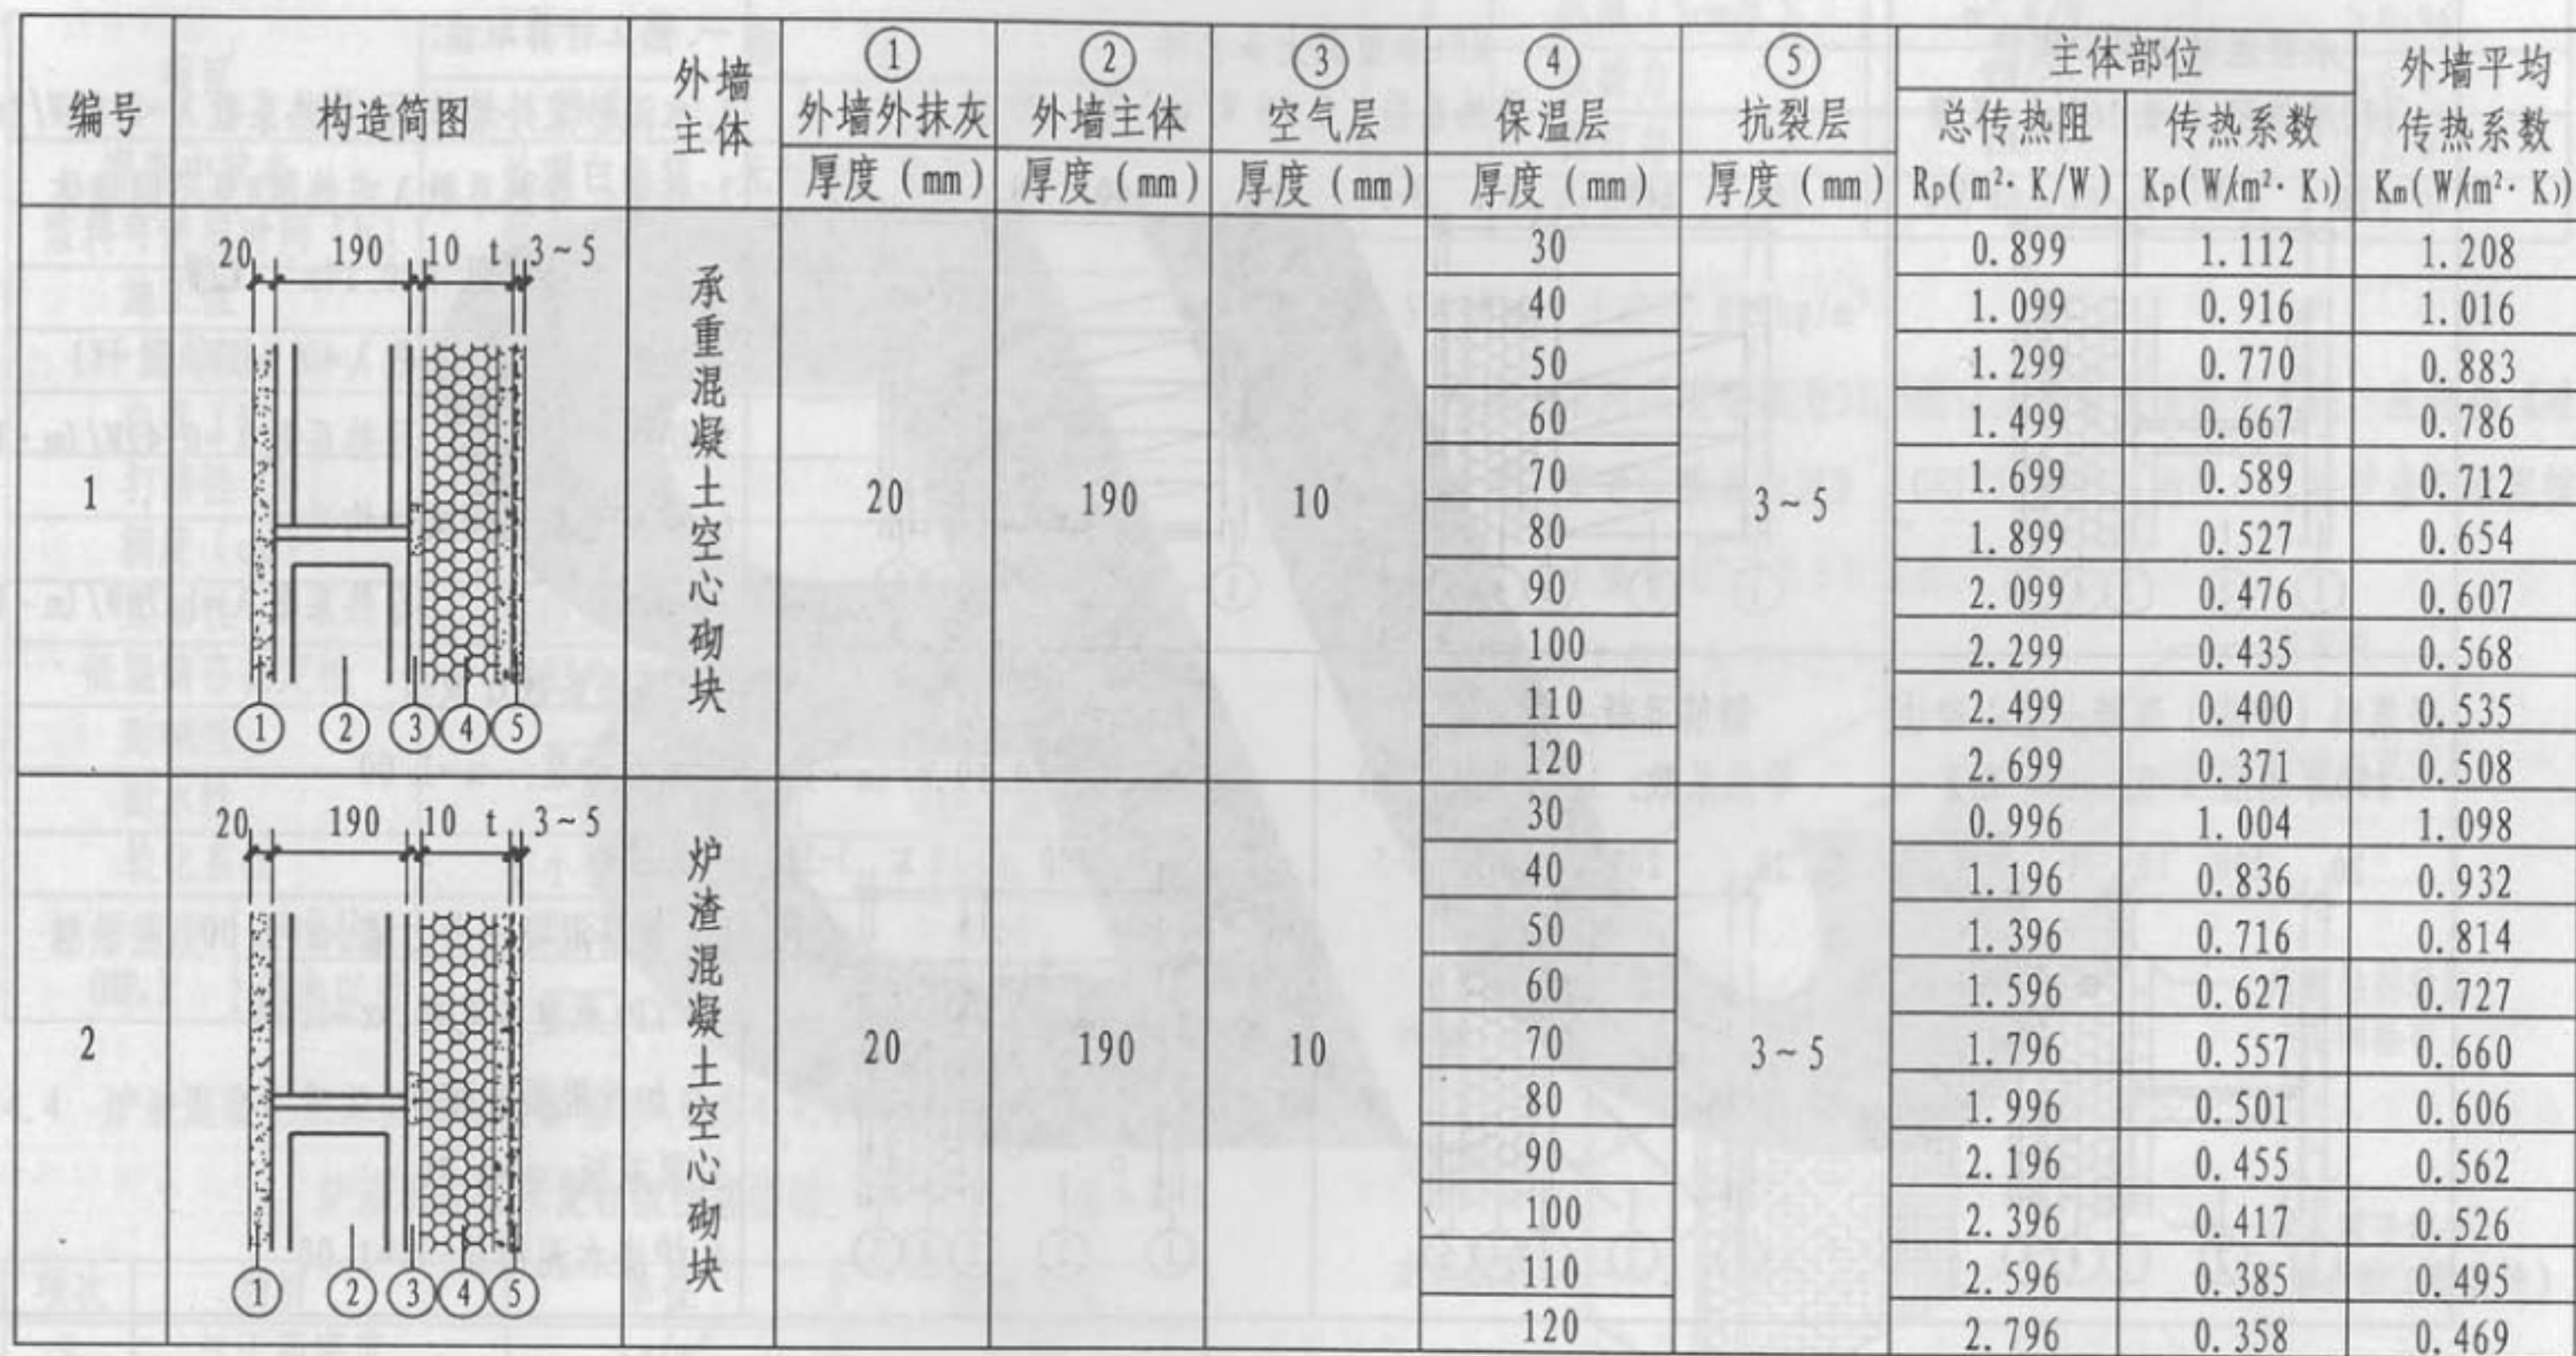 编号
构造简图
外墙
主体
①
外墙外抹灰
厚度(mm)
②
外墙主体
厚度(mm)
③
空气层
厚度(mm)
④
保温层
厚度(mm)
⑤
抗裂层
厚度(mm)
主体部位
总传热阻
Rp(m²·K/W)
传热系数
Kp(W/(m²·K))
外墙平均
传热系数
Km(W/(m²·K))
1
20 190 10 t 3~5
① ② ③ ④ ⑤
承重混凝土空心砌块
20 190 10 3~5
30 0.899 1.112 1.208
40 1.099 0.916 1.016
50 1.299 0.770 0.883
60 1.499 0.667 0.786
70 1.699 0.589 0.712
80 1.899 0.527 0.654
90 2.099 0.476 0.607
100 2.299 0.435 0.568
110 2.499 0.400 0.535
120 2.699 0.371 0.508
2
20 190 10 t 3~5
① ② ③ ④ ⑤
炉渣混凝土空心砌块
20 190 10 3~5
30 0.996 1.004 1.098
40 1.196 0.836 0.932
50 1.396 0.716 0.814
60 1.596 0.627 0.727
70 1.796 0.557 0.660
80 1.996 0.501 0.606
90 2.196 0.455 0.562
100 2.396 0.417 0.526
110 2.596 0.385 0.495
120 2.796 0.358 0.469